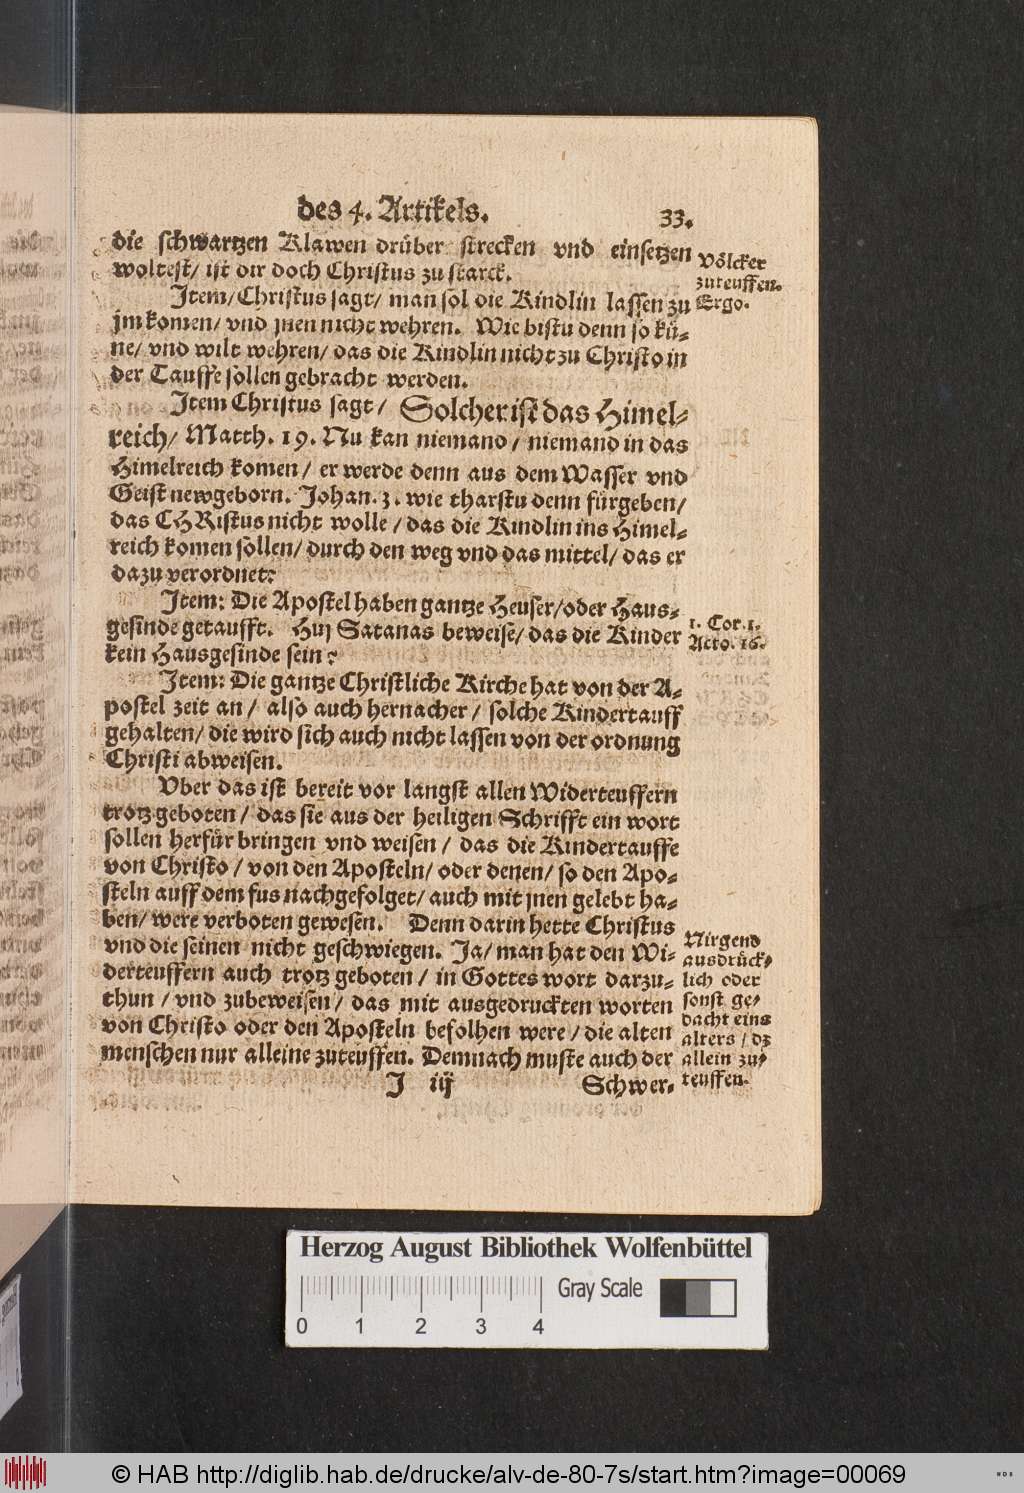 des 4. Artikels. 33.
die schwartzen Klawen drüber strecken vnd einsetzen
woltest/ ist dir doch Christus zu starck.
Item/ Christus sagt/ man sol die Kindlin lassen zu
jm komen/ vnd jnen nicht wehren. Wie bistu denn so kü-
ne/ vnd wilt wehren/ das die Kindlin nicht zu Christo in
der Tauffe sollen gebracht werden.
Item Christus sagt/ Solcher ist das Himel-
reich/ Matth. 19. Nu kan niemand/ niemand in das
Himelreich komen/ er werde denn aus dem Wasser vnd
Geist newgeborn. Johan. 3. wie tharstu denn fürgeben/
das CHRistus nicht wolle/ das die Kindlin ins Himel-
reich komen sollen/ durch den weg vnd das mittel/ das er
dazu verordnet?
Item: Die Apostel haben gantze Heuser/oder Haus-
gesinde getaufft. Huj Satanas beweise/ das die Kinder
kein Hausgesinde sein?
Item: Die gantze Christliche Kirche hat von der A-
postel zeit an/ also auch hernacher/ solche Kindertauff
gehalten/ die wird sich auch nicht lassen von der ordnung
Christi abweisen.
Vber das ist bereit vor langst allen Widerteuffern
trotz geboten/ das sie aus der heiligen Schrifft ein wort
sollen herfür bringen vnd weisen/ das die Kindertauffe
von Christo/ von den Aposteln/ oder denen/ so den Apo-
steln auff dem fus nachgefolget/ auch mit jnen gelebt ha-
ben/ were verboten gewesen. Denn darin hette Christus
vnd die seinen nicht geschwiegen. Ja/ man hat den Wi-
derteuffern auch trotz geboten/ in Gottes wort darzu-
thun/ vnd zubeweisen/ das mit ausgedruckten worten
von Christo oder den Aposteln befolhen were/ die alten
menschen nur alleine zuteuffen. Demnach muste auch der
J iij Schwer-
Völcker
zuteuffen.
Ergo.
1. Cor. 1.
Acto. 16.
Nirgend
ausdrück-
lich oder
sonst ge-
dacht eins
alters/ dz
allein zu-
teuffen.
Herzog August Bibliothek Wolfenbüttel
Gray Scale
0 1 2 3 4
© HAB http://diglib.hab.de/drucke/alv-de-80-7s/start.htm?image=00069